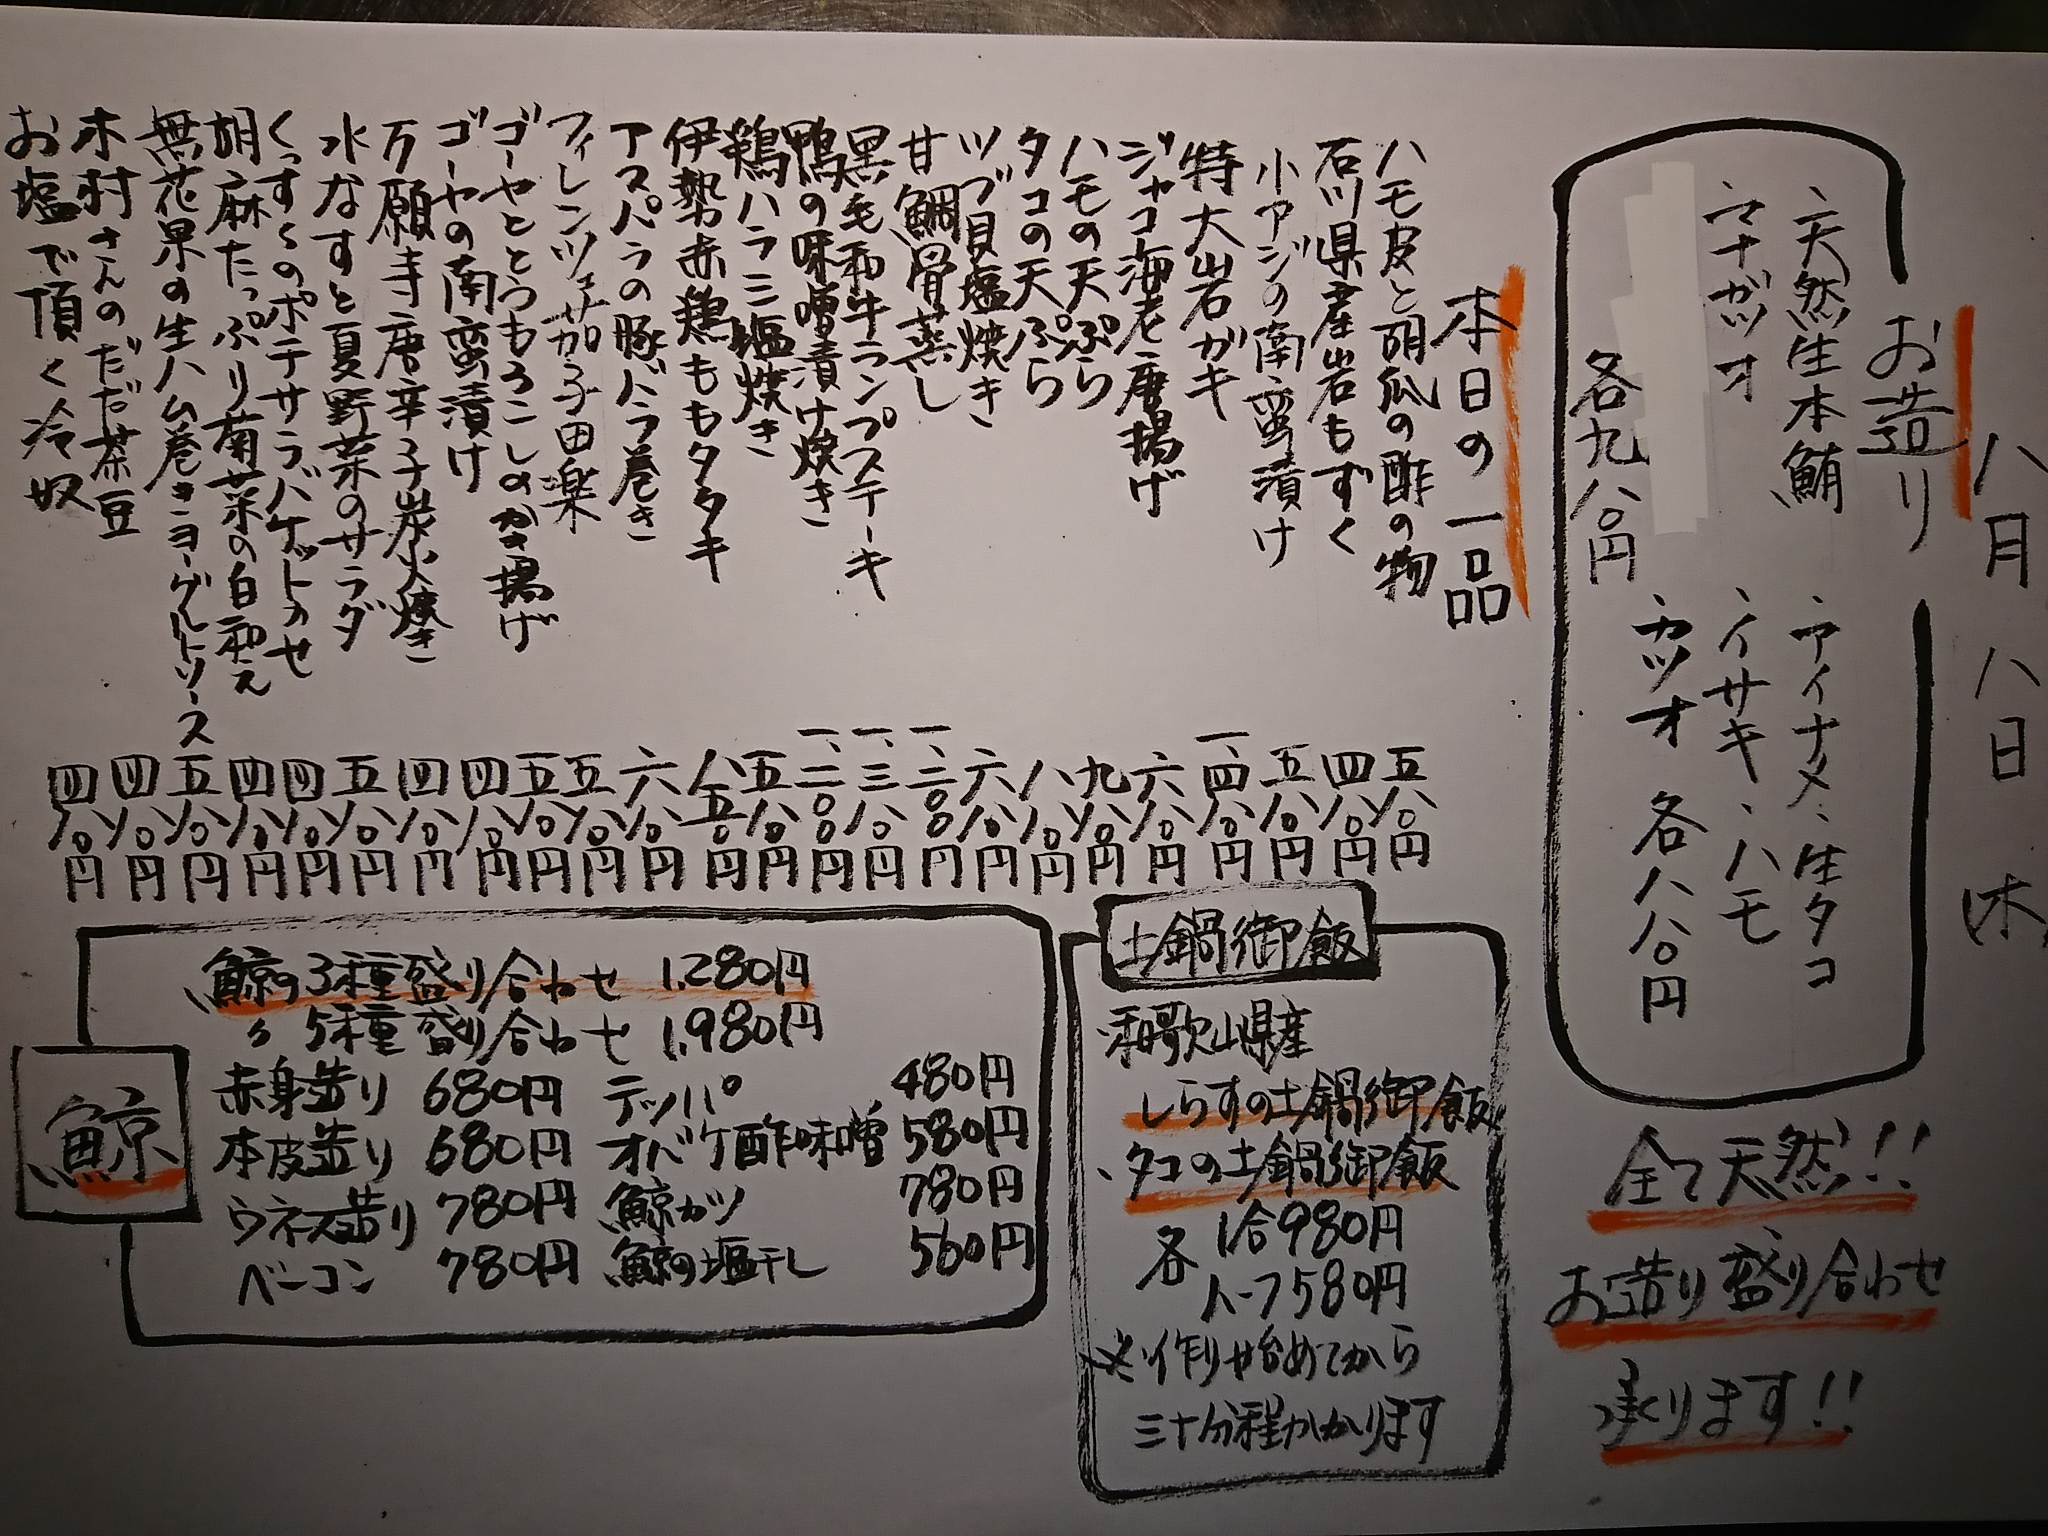 八月八日(木)
お造り
・天然生本鮪
・マナガツオ
各九八〇円
・アイナメ・生タコ
・イサキ・ハモ
・カツオ 各八八〇円
全て天然!!
お造り盛り合わせ
承ります!!
本日の一品
ハモ皮と胡瓜の酢の物 五八〇円
石川県産岩もずく 四八〇円
小アジの南蛮漬け 五八〇円
特大岩ガキ 一、四八〇円
ジャコ海老唐揚げ 六八〇円
ハモの天ぷら 九八〇円
タコの天ぷら 八八〇円
ツブ貝塩焼き 六八〇円
甘鯛骨蒸し 一、二〇〇円
黒毛和牛ランプステーキ 一、三八〇円
鴨の味噌漬け焼き 一、二〇〇円
鶏ハラミ塩焼き 五八〇円
伊勢赤鶏ももタタキ 八五〇円
アスパラの豚バラ巻き 六八〇円
フィレンツェ茄子田楽 五八〇円
ゴーヤととうもろこしのかき揚げ 五八〇円
ゴーヤの南蛮漬け 四八〇円
万願寺唐辛子炭火焼き 四八〇円
水なすと夏野菜のサラダ 五八〇円
くっすぐのポテサラバケットのせ 四八〇円
胡麻たっぷり菊菜の白和え 四八〇円
無花果の生ハム巻きヨーグルトソース 五八〇円
木村さんのだだ茶豆 四八〇円
お塩で頂く冷奴 四八〇円
土鍋御飯
・和歌山県産
しらすの土鍋御飯
・タコの土鍋御飯
各 1合980円
ハーフ580円
※作り始めてから
三十分程かかります
鯨
鯨の3種盛り合わせ 1,280円
〃 5種盛り合わせ 1,980円
赤身造り 680円 テッパ 480円
本皮造り 680円 オバケ酢味噌 580円
ウネス造り 780円 鯨カツ 780円
ベーコン 780円 鯨の塩干し 560円